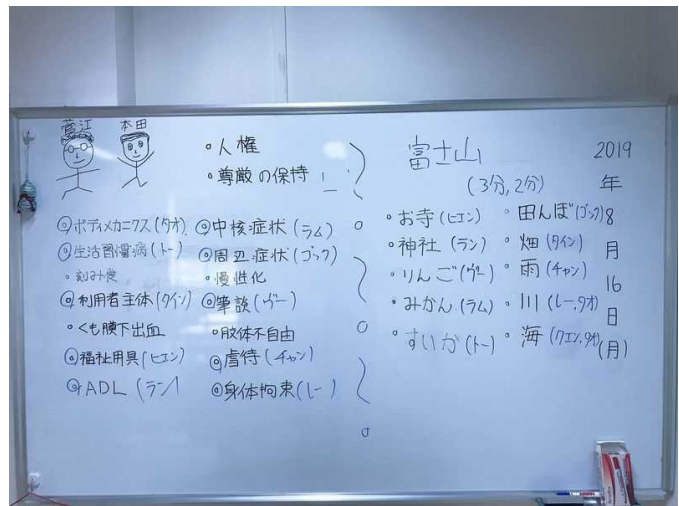 菅江 本田
・人権
・尊厳の保持
◎ボディメカニクス(タオ)
◎生活習慣病(トー)
・刻み食
◎利用者主体(タイン)
・くも膜下出血
◎福祉用具(ヒエン)
◎ADL(ラン)
◎中核症状(ラム)
◎周辺症状(ゴック)
・慢性化
◎筆談(ヴー)
・肢体不自由
◎虐待(チャン)
◎身体拘束(レー)
富士山
(3分,2分)
・お寺(ヒエン)
・神社(ラン)
・りんご(ヴー)
・みかん(ラム)
・すいか(トー)
・田んぼ(ゴック)
・畑(タイン)
・雨(チャン)
・川(レー,タオ)
・海(クエン,タオ)
2019
年
8
月
16
日
(月)